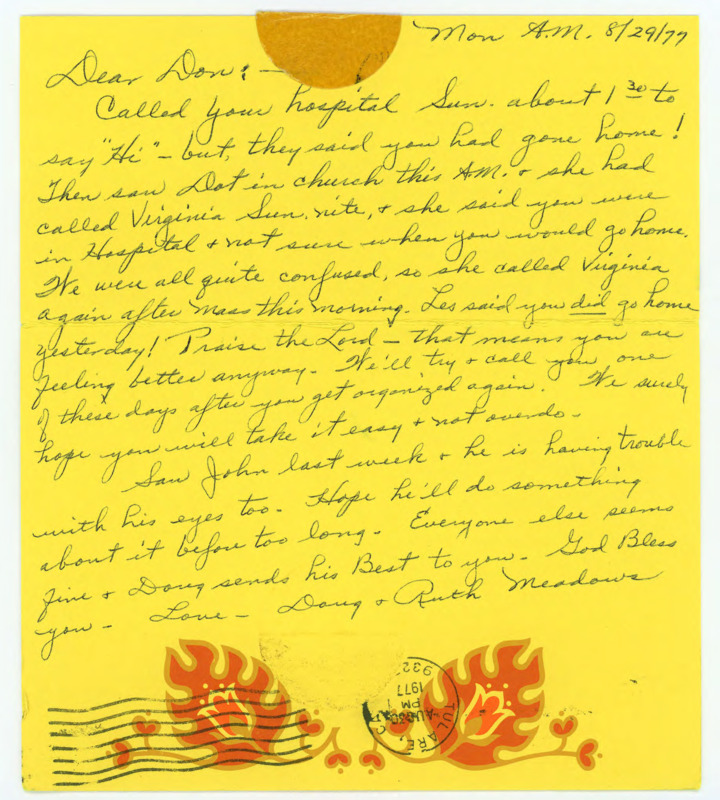 Mon A.M. 8/29/77
Dear Don: —
Called your hospital Sun. about 1 30 to
say "Hi" - but, they said you had gone home!
Then saw Dot in church this AM. & she had
called Virginia Sun. nite, & she said you were
in Hospital & not sure when you would go home.
We were all quite confused, so she called Virginia
again after Mass this morning. Les said you did go home
yesterday! Praise the Lord - that means you are
feeling better anyway. We'll try & call you one
of these days after you get organized again. We surely
hope you will take it easy & not overdo.
Saw John last week & he is having trouble
with his eyes too. Hope he'll do something
about it before too long. Everyone else seems
fine & Doug sends his Best to you. God Bless
you - Love - Doug & Ruth Meadows
TULARE, CA
PM
1977
932